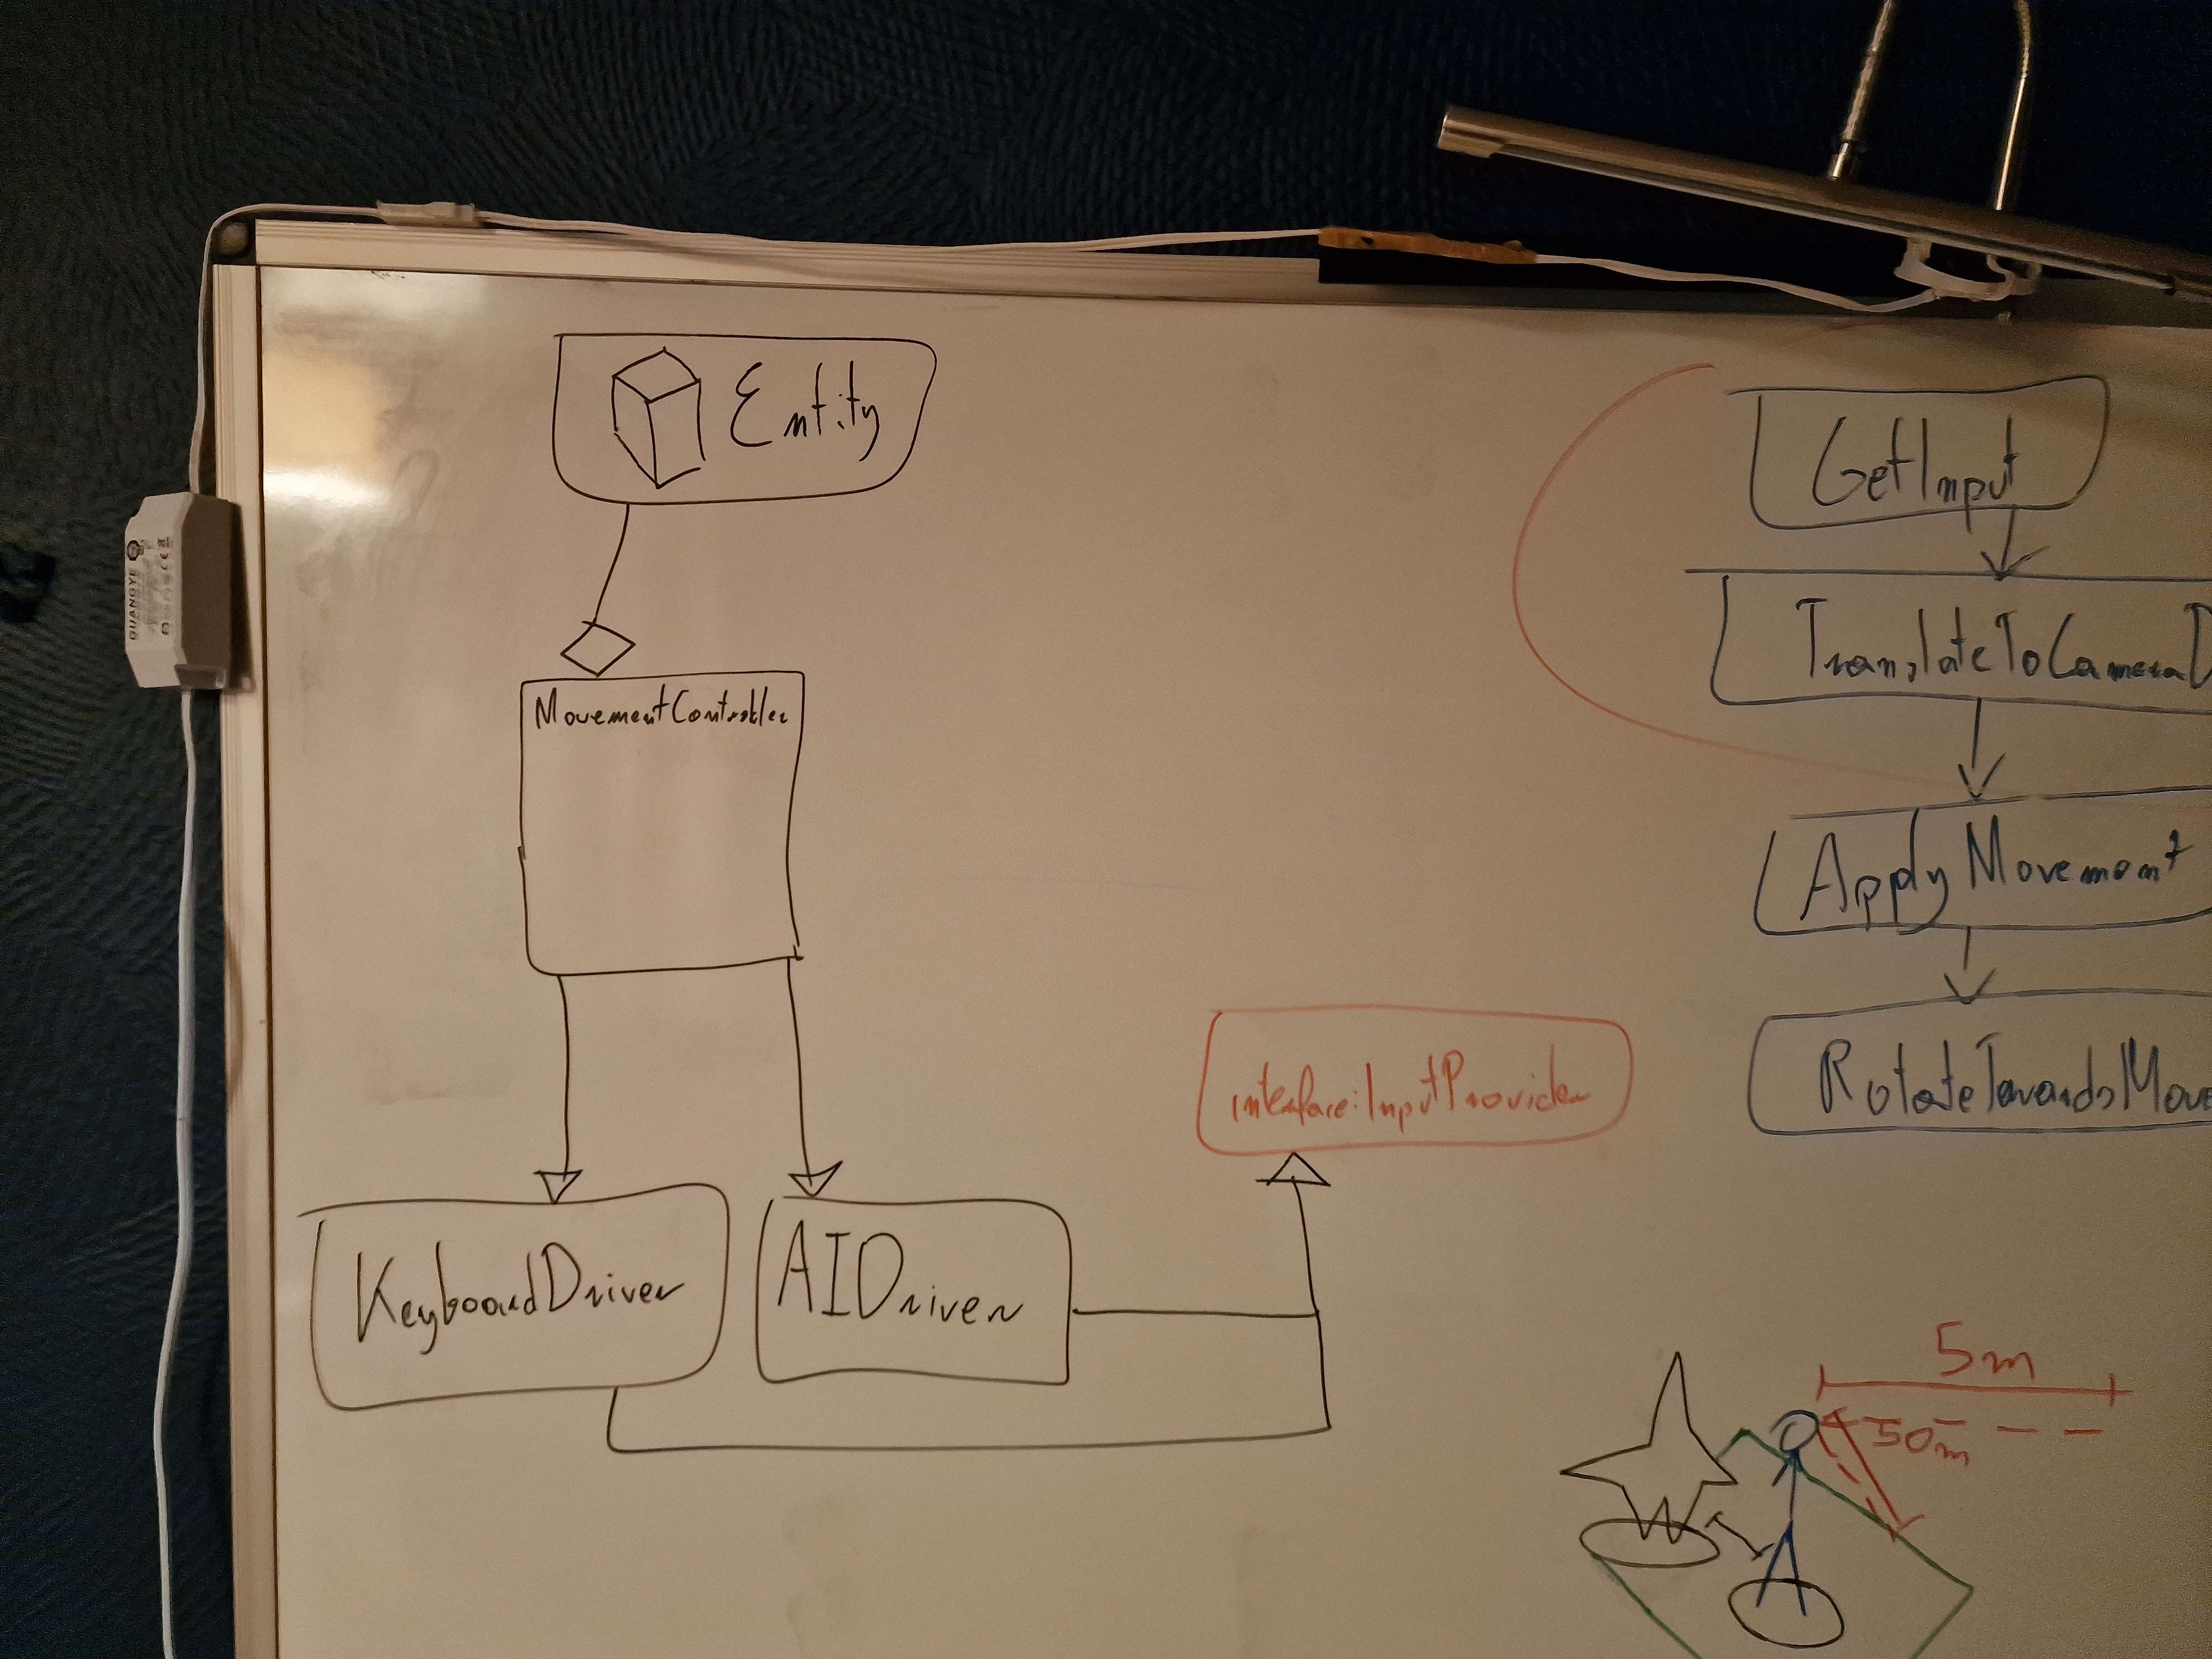 Entity
MovementController
KeyboardDriver
AIDriver
interface:InputProvider
GetInput
TranslateToCameraD
ApplyMovement
RotateTowardsMove
5m
50m
QUANGYE